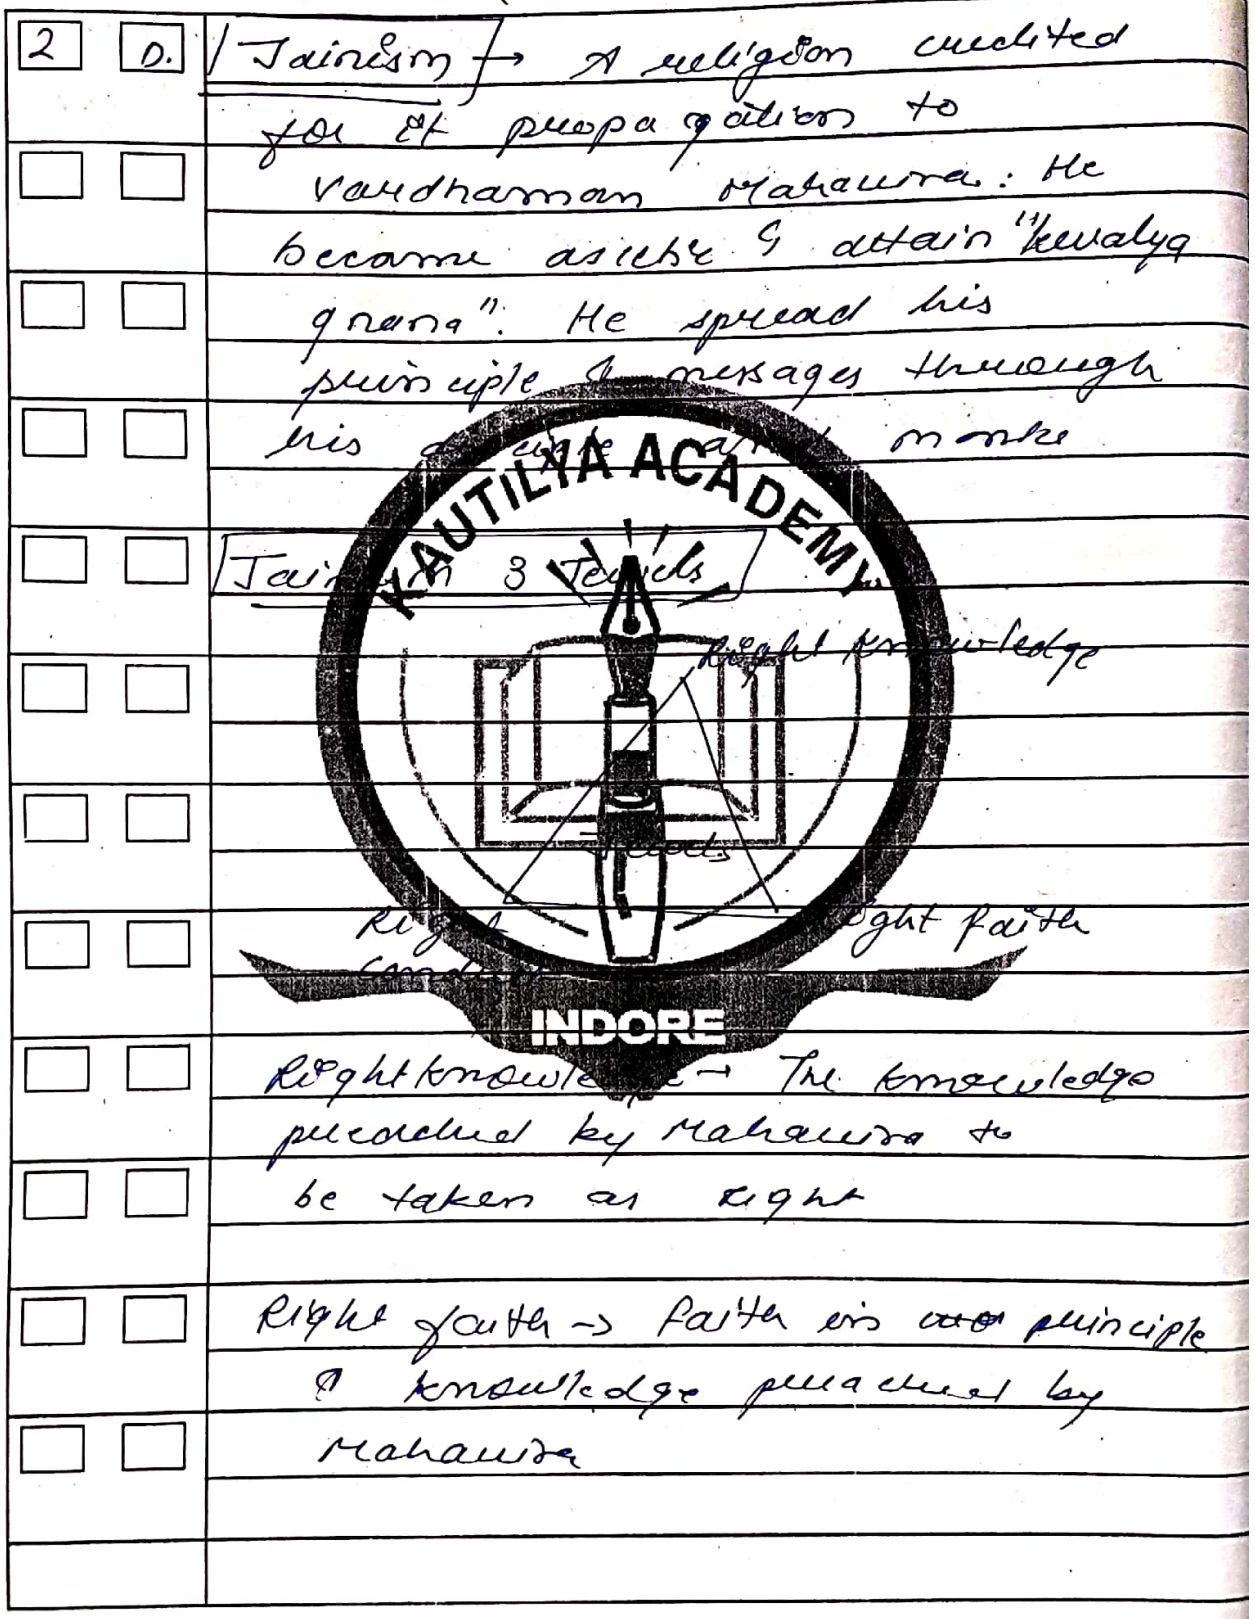 2 D. Jainism → A religion credited
for it propagation to
Vardhaman Mahavira. He
became asietic & attain "kevalya
gnana". He spread his
principle & messages through
his and monks
KAUTILYA ACADEMY
Jainism 3 Jewels
Right knowledge
Jewels
Right conduct
Right faith
INDORE
Right knowledge → The knowledge
preached by Mahavira to
be taken as right
Right faith → Faith in principle
& knowledge preached by
Mahavira